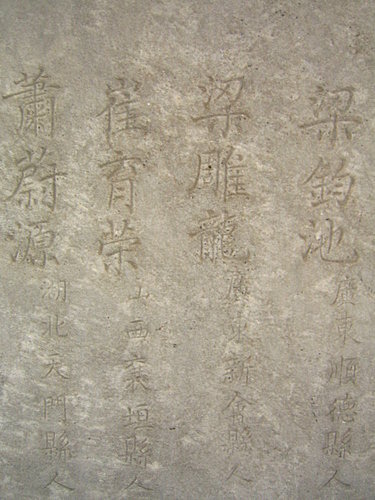 梁鈞池 廣東順德縣人
梁雕龍 廣東新會縣人
崔育榮 山西襄垣縣人
蕭蔚源 湖北天門縣人